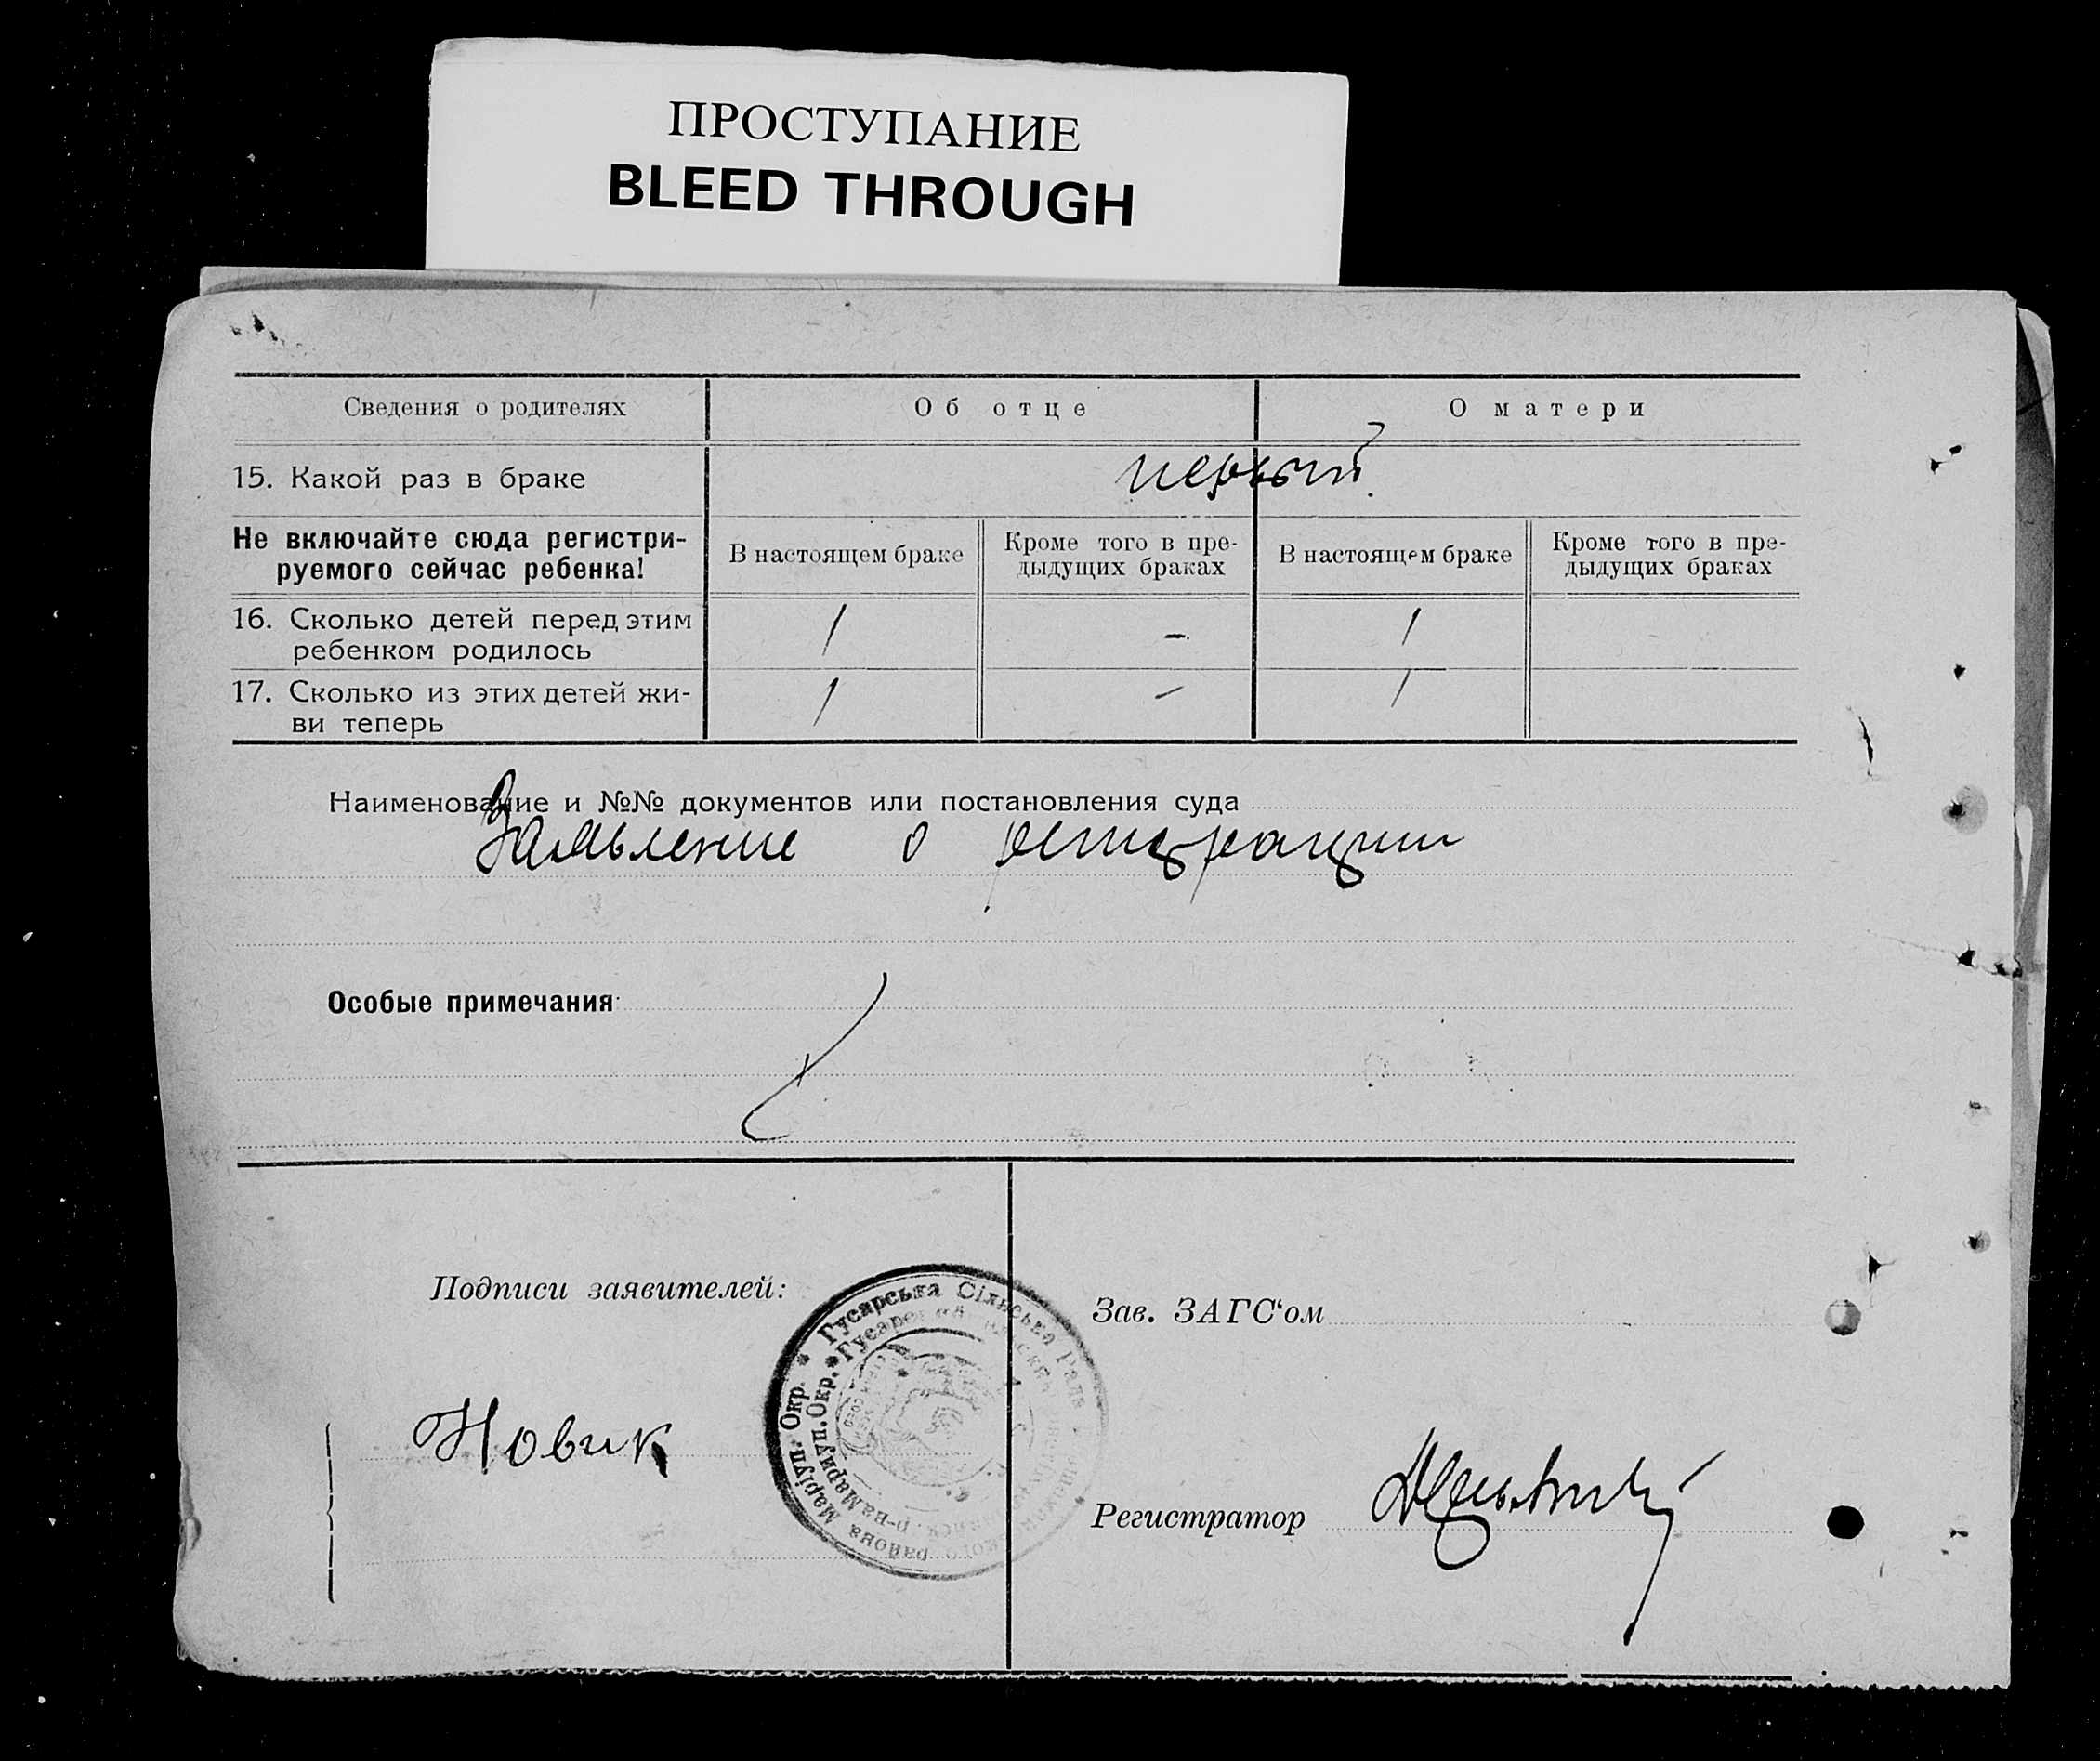 ПРОСТУПАНИЕ
BLEED THROUGH
Сведения о родителях Об отце О матери
15. Какой раз в браке первый
Не включайте сюда регистри-
руемого сейчас ребенка!
В настоящем браке
Кроме того в пре-
дыдущих браках
В настоящем браке
Кроме того в пре-
дыдущих браках
16. Сколько детей перед этим
ребенком родилось
1 - 1
17. Сколько из этих детей жи-
ви теперь
1 - 1
Наименование и №№ документов или постановления суда
Заявление о регистрации
Особые примечания
Подписи заявителей:
Новик
* Гусарська Сільська Рада
района Маріуп. Окр.
р-на Мариуп. Окр. *
Зав. ЗАГС'ом
Регистратор